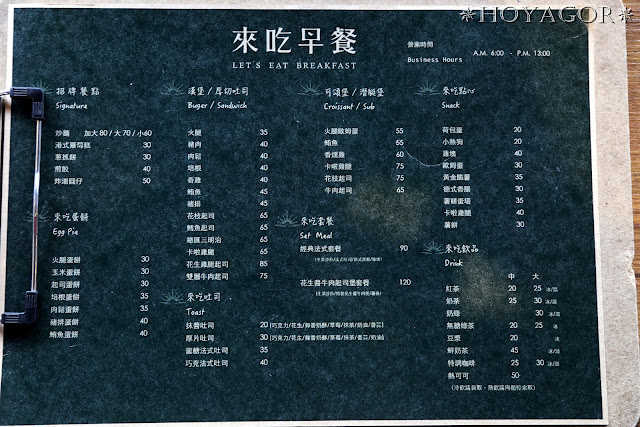 ✳HOYAGOR✳
來吃早餐
LET'S EAT BREAKFAST
營業時間
Business Hours
A.M. 6:00 - P.M. 13:00
招牌餐點
Signature
炒麵 加大80/大70/小60
港式蘿蔔糕 30
蔥抓餅 30
煎餃 40
炸湯圓仔 50
來吃蛋餅
Egg Pie
火腿蛋餅 30
玉米蛋餅 30
起司蛋餅 30
培根蛋餅 35
肉鬆蛋餅 35
豬排蛋餅 40
鮪魚蛋餅 40
漢堡/厚切吐司
Buger / Sandwich
火腿 35
豬肉 40
肉鬆 40
培根 40
香雞 40
鮪魚 45
豬排 45
花枝起司 65
鱈魚起司 65
總匯三明治 65
卡啦雞腿 65
花生雞腿起司 85
雙層牛肉起司 75
來吃吐司
Toast
抹醬吐司 20 (巧克力/花生/椰香奶酥/草莓/抹茶/奶油/香蒜)
厚片吐司 30 (巧克力/花生/椰香奶酥/草莓/抹茶/香蒜/奶油)
蜜糖法式吐司 35
巧克法式吐司 40
可頌堡/潛艇堡
Croissant / Sub
火腿歐姆蛋 55
鮪魚 55
香燻雞 60
卡啦雞腿 75
花枝起司 65
牛肉起司 65
來吃套餐
Set Meal
經典法式套餐 90
花生醬牛肉起司堡套餐 120
來吃點心
Snack
荷包蛋 20
小熱狗 20
雞塊 40
歐姆蛋 30
黃金脆薯 35
德式香腸 30
薯餅蛋塔 35
卡啦雞腿 40
薯餅 30
來吃飲品
Drink
中 大
紅茶 20 25 冰/溫
奶茶 25 30 冰/溫
奶綠 30 冰/溫
無糖綠茶 20 25 冰
豆漿 20 冰
鮮奶茶 45 冰/溫
特調咖啡 25 30 冰/溫
熱可可 50